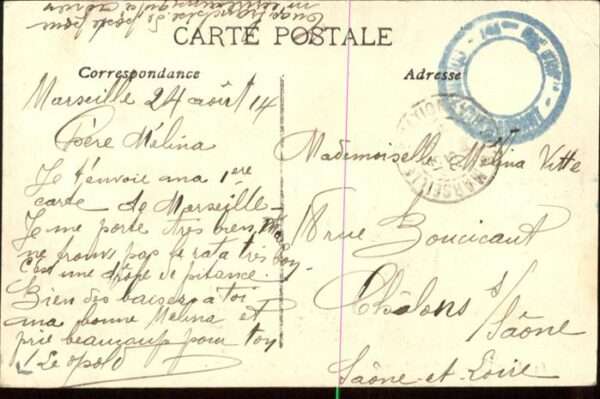 CARTE POSTALE
Correspondance
Adresse
Marseille 24 août 14
Chère Mélina
Je t'envoie ma 1ère
carte de Marseille
Je me porte très bien
ne trouve pas le rata très bon
c'est une drôle de pitance.
Bien des baisers a toi
ma bonne Mélina et
prie beaucoup pour toy
Léopold
Mademoiselle Mélina Vitte
18 rue Boucicaut
Châlons s/
Saône
Saône-et-Loire
MARSEILLE